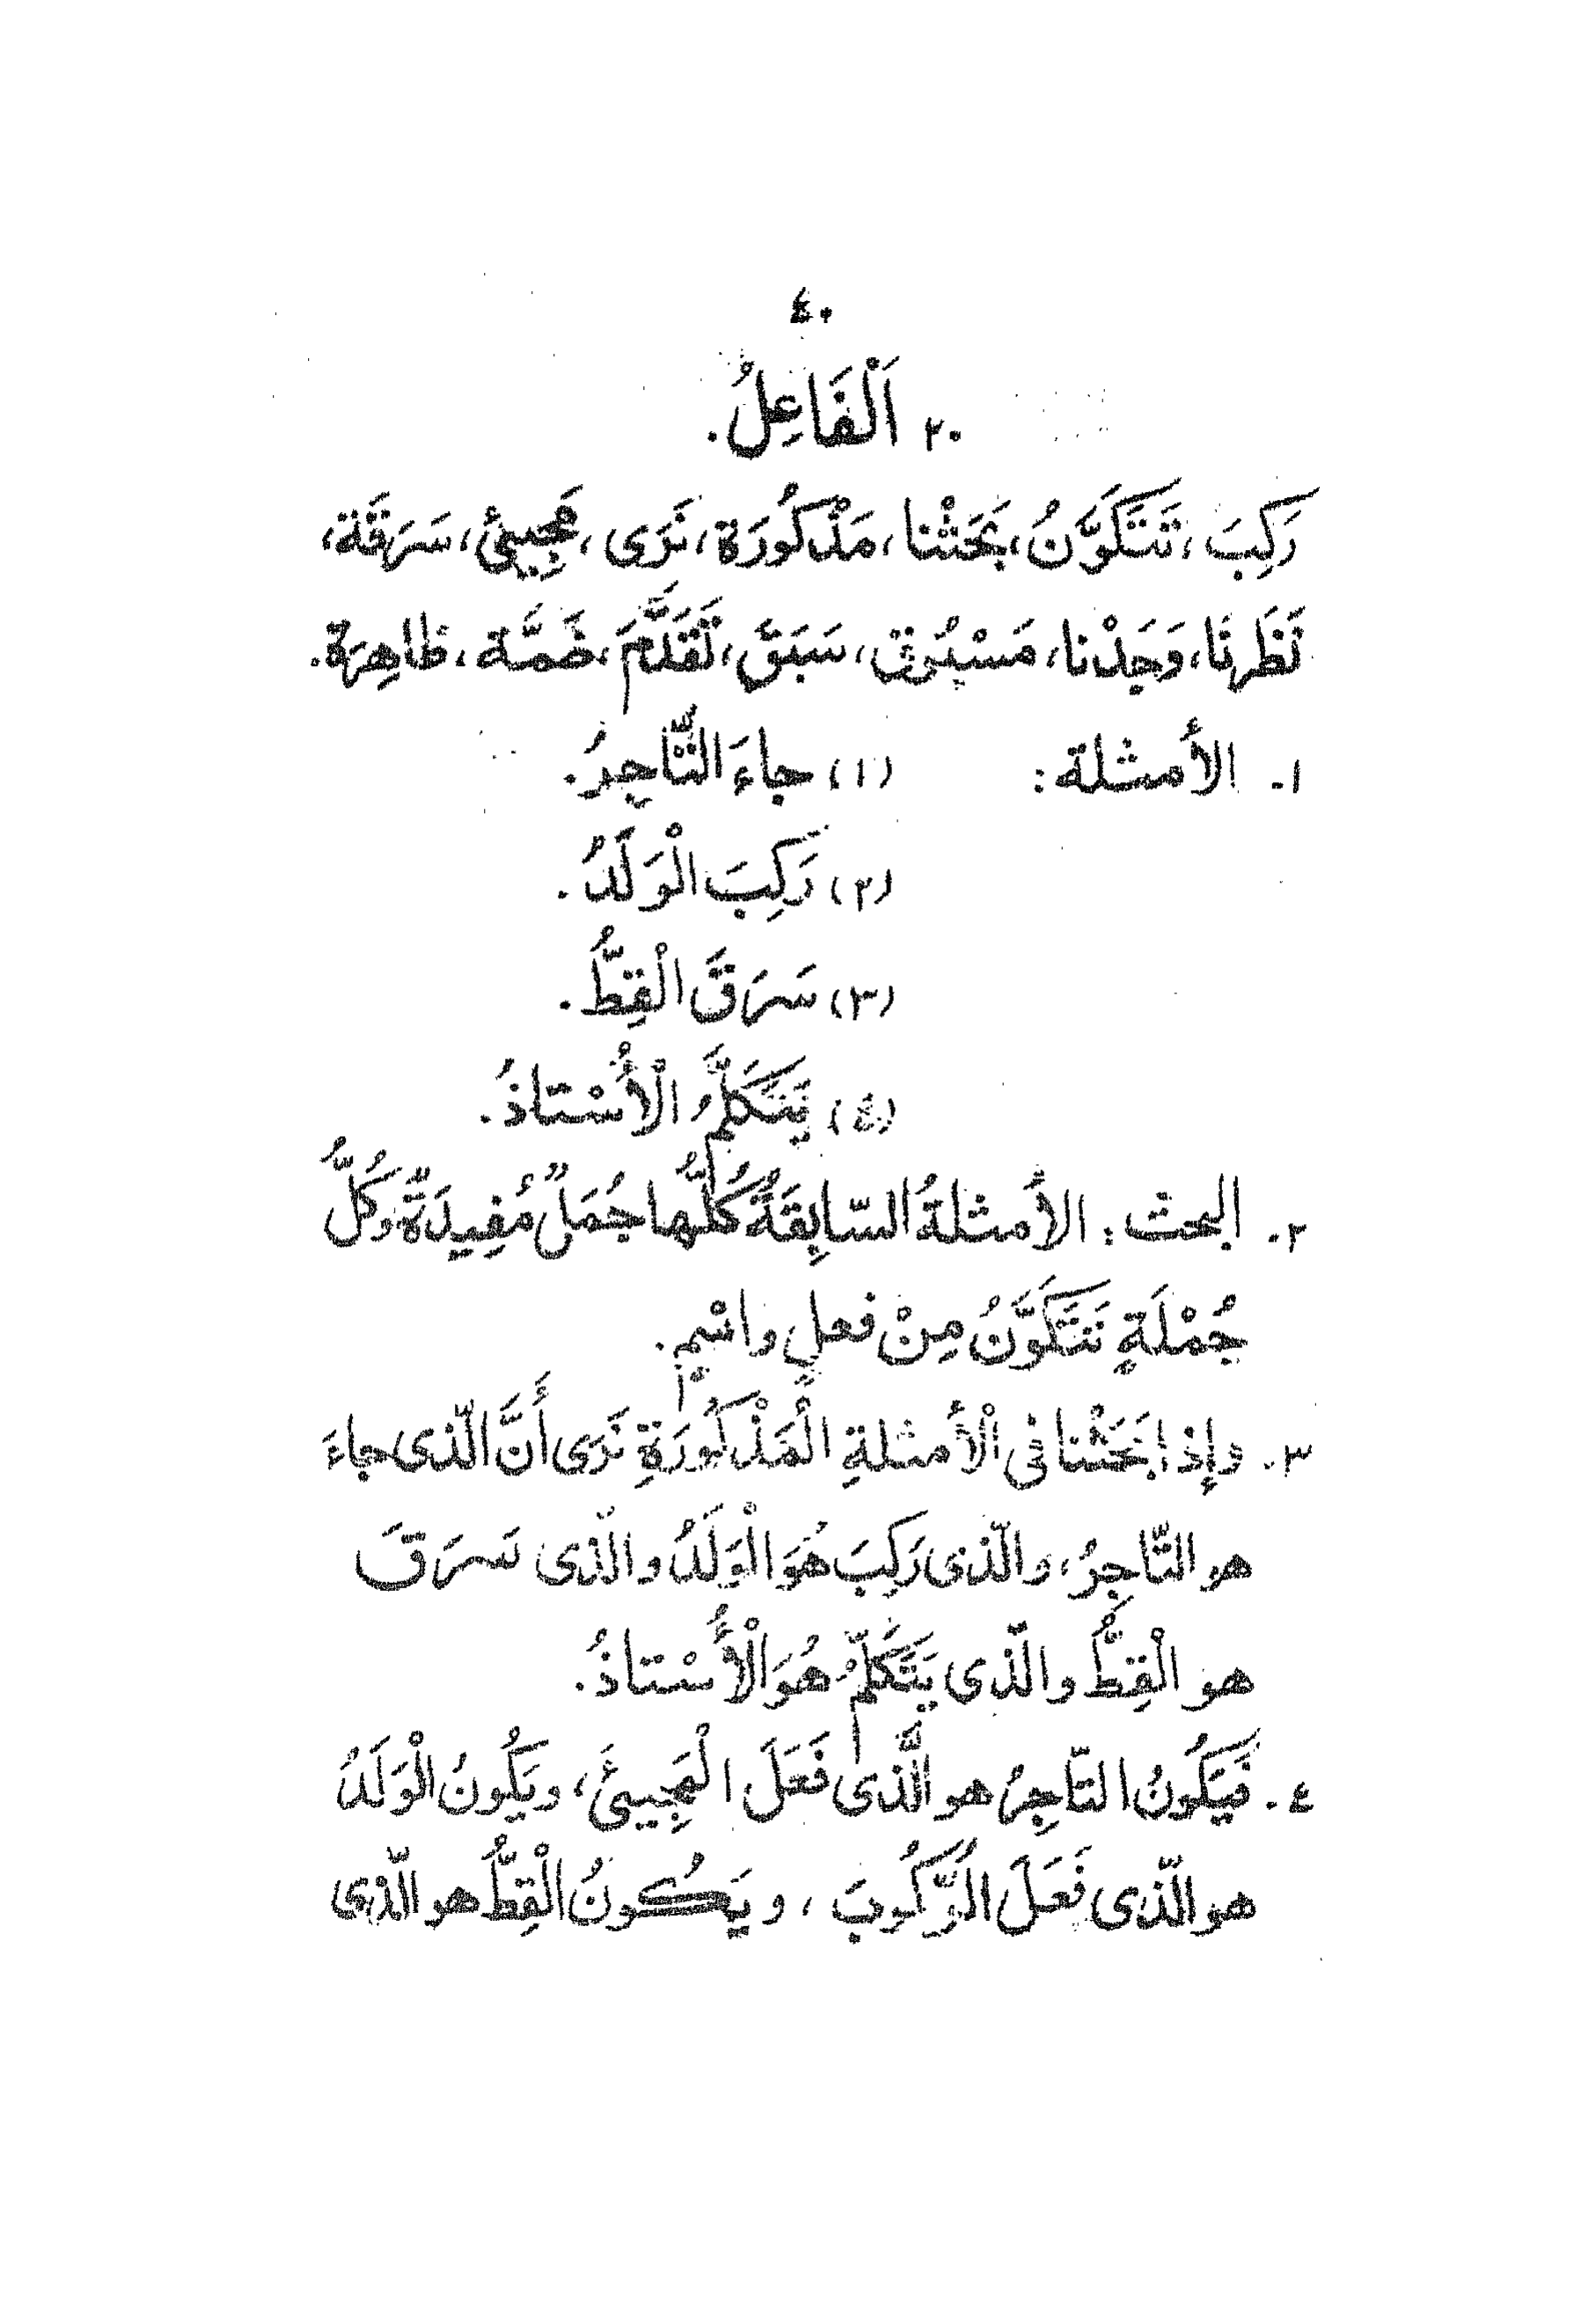 ٤٠
٢٠ اَلْفَاعِلُ.
رَكِبَ، تَتَكَوَّنُ، بَحَثْنا، مَذْكُورَة، نَرَى، مَجِيئُ، سَرَقَة،
نَظَرنَا، وَجَدْنا، مَسْبُوق، سَبَقَ، تَقَدَّمَ، ضَمَّة، ظاهِرَة.
١. الأمثلة: (١) جاءَ التَّاجِرُ.
(٢) رَكِبَ الْوَلَدُ.
(٣) سَرَقَ الْقِطُّ.
(٤) يَتَكَلَّمُ الْأُسْتاذُ.
٢. البحث: الأمثلةُ السّابِقَةُ كُلُّها جُمَلٌ مُفِيدَةٌ وكُلُّ
جُمْلَةٍ تَتَكَوَّنُ مِنْ فعلٍ واسْمٍ.
٣. وإذا بَحَثْنا فى الْأمثلةِ الْمَذْكُورَةِ نَرَى أَنَّ الّذى جاءَ
هو التّاجِرُ، والّذى رَكِبَ هُوَ الْوَلَدُ والّذى سَرَقَ
هو الْقِطُّ والّذى يَتَكَلَّمُ هُوَ الْأُسْتاذُ.
٤. فَيَكُونُ التّاجِرُ هو الَّذى فَعَلَ الْمَجِيئَ، ويَكُونُ الْوَلَدُ
هو الّذى فَعَلَ الرُّكُوبَ، ويَكُونُ الْقِطُّ هو الّذى